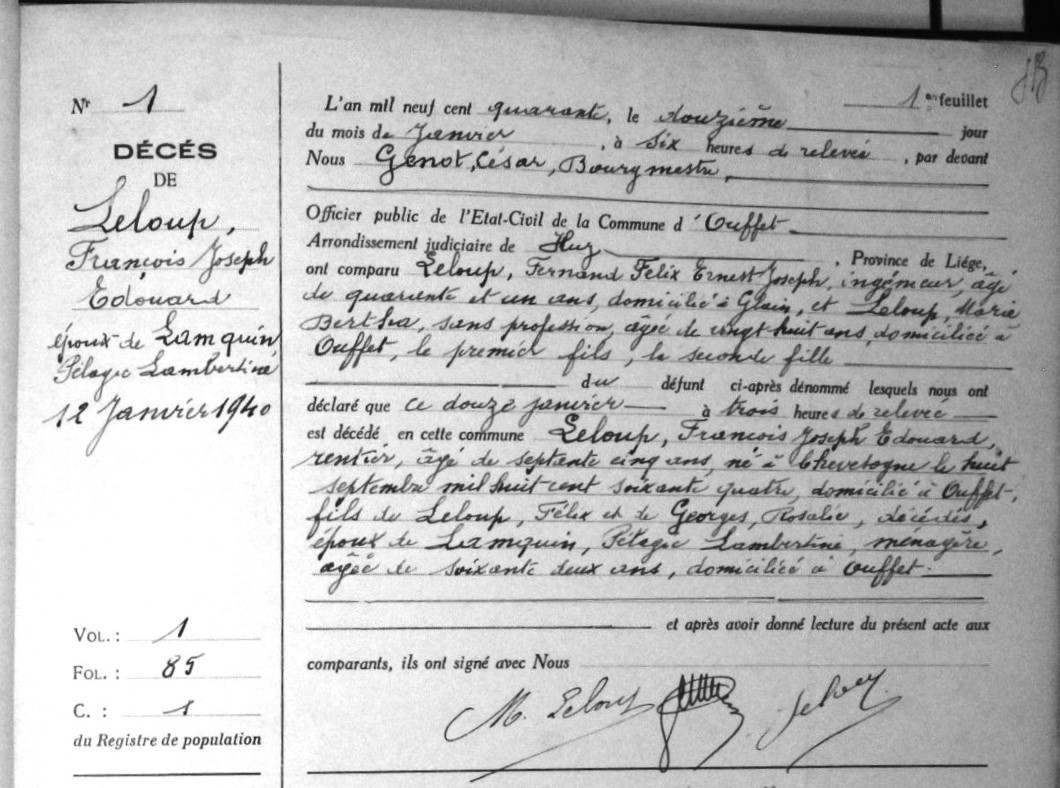 Nr 1
DÉCÉS
DE
Leloup,
François Joseph
Edouard
époux de Lamquin
Pélagie Lambertine
12 Janvier 1940
VOL. : 1
FOL. : 85
C. : 1
du Registre de population
1er feuillet
L'an mil neuf cent quarante, le douzième jour
du mois de Janvier, à six heures de relevée, par devant
Nous Genot, César, Bourgmestre,
Officier public de l'Etat-Civil de la Commune d'Ouffet
Arrondissement judiciaire de Huy, Province de Liége,
ont comparu Leloup, Fernand Felix Ernest Joseph, ingénieur, âgé
de quarante et un ans, domicilié à Glain, et Leloup, Marie
Bertha, sans profession, âgée de vingt huit ans, domiciliée à
Ouffet, le premier fils, la seconde fille
du défunt ci-après dénommé lesquels nous ont
déclaré que ce douze janvier à trois heures de relevée
est décédé en cette commune Leloup, François Joseph Edouard,
rentier, âgé de septante cinq ans, né à Chevetogne le huit
septembre mil huit cent soixante quatre, domicilié à Ouffet,
fils de Leloup, Félix et de Georges, Rosalie, décédés,
époux de Lamquin, Pélagie Lambertine, ménagère,
âgée de soixante deux ans, domiciliée à Ouffet.
et après avoir donné lecture du présent acte aux
comparants, ils ont signé avec Nous
M. Leloup